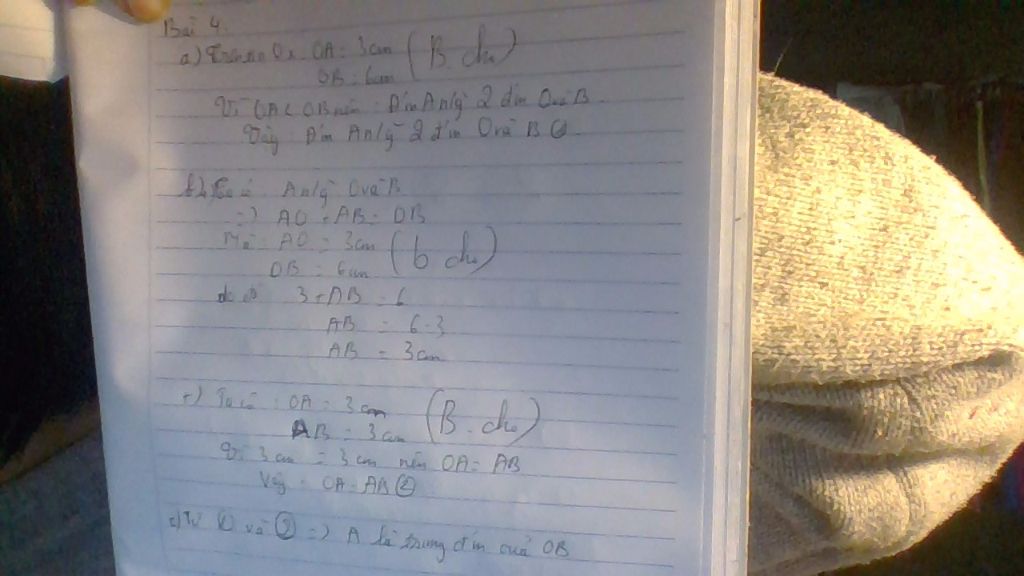 Bài 4.
a) Trên tia Ox: OA = 3cm (B. cho)
OB = 6cm
Vì OA < OB nên: Điểm A n/g 2 điểm O và B.
Vậy: Điểm A n/g 2 điểm O và B ①
b) Ta có: A n/g O và B.
=) AO + AB = OB
Mà: AO = 3cm (b cho)
OB = 6cm
do đó 3 + AB = 6
AB = 6-3
AB = 3cm
c) Ta có: OA = 3cm (B. cho)
AB = 3cm
Vì 3cm = 3cm nên OA = AB
Vậy: OA = AB ②
c) Từ ① và ② =) A là trung điểm của OB